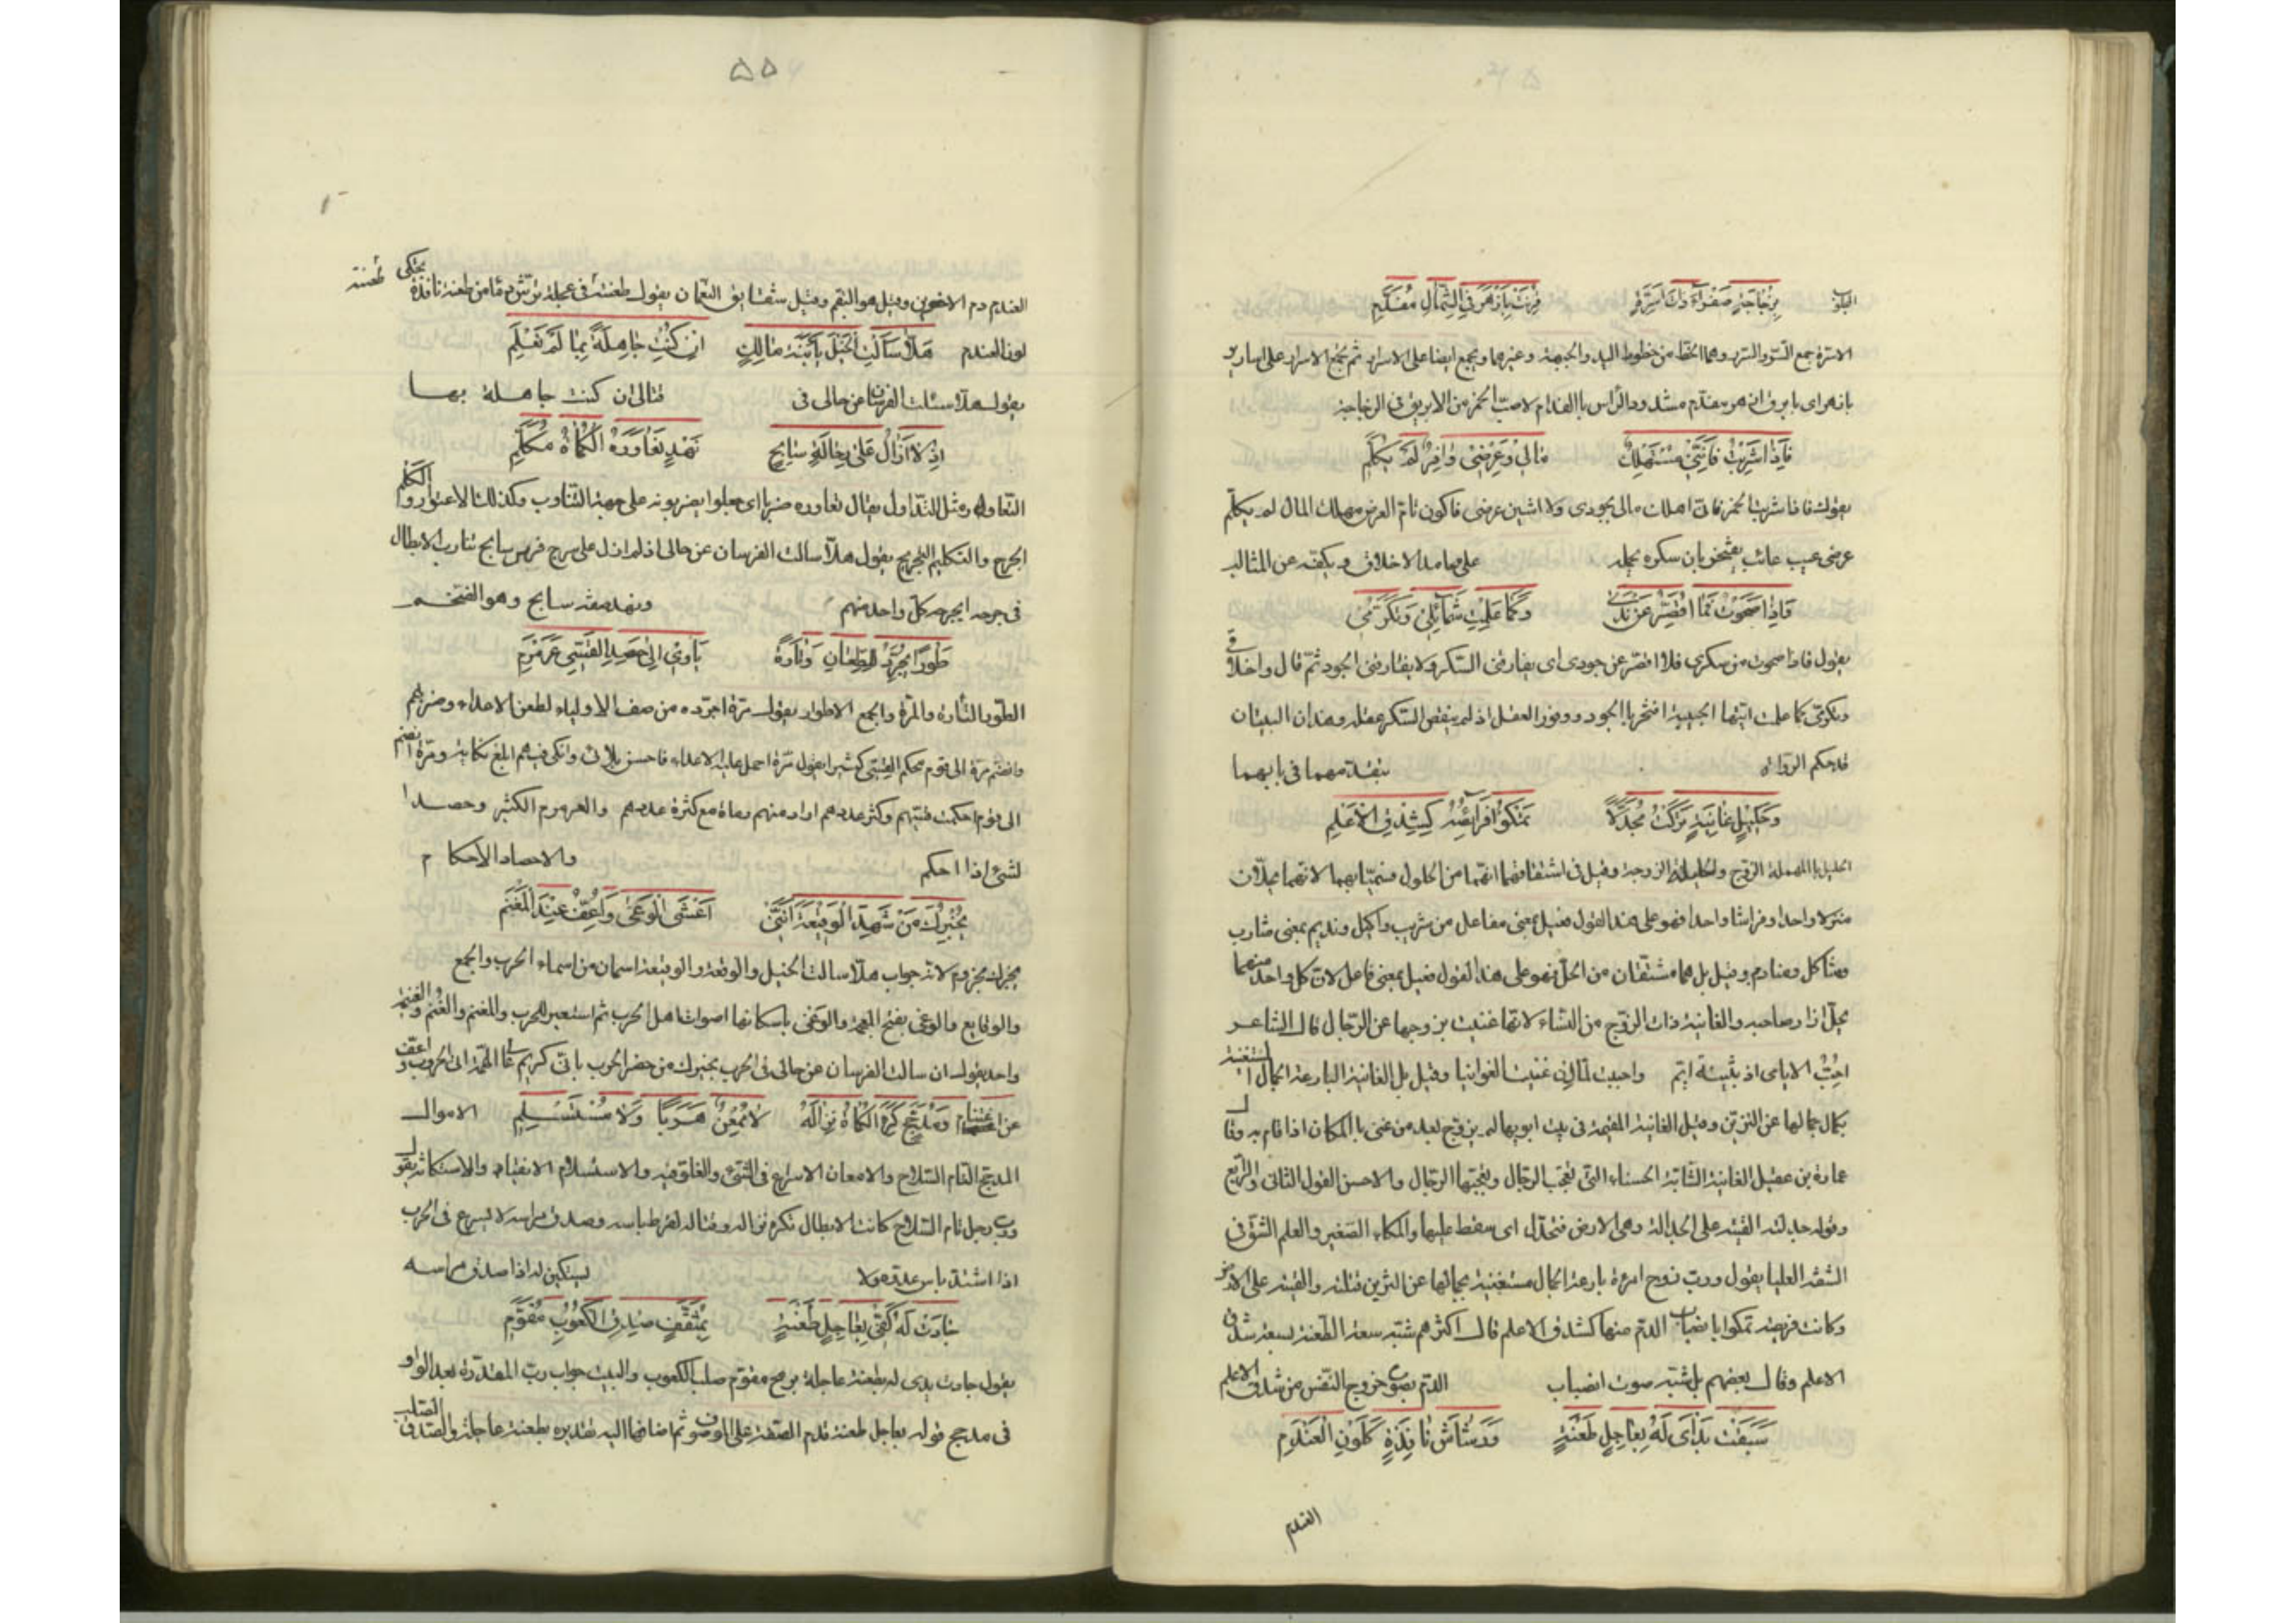 بزجاجة صفراء ذات اسرة قرنت بازهر في الشمال مفدم
الاسرة جمع السر والسرر وهما الخط من خطوط اليد والجبهة وغيرهما ويجمع ايضا على الاسرار ثم تجمع الاسرار على اسارير
بازهر اى بابريق ازهر مفدم مشدود الراس بالفدام لاصب الخمر من الابريق فى الزجاجة
فاذا شربت فانني مستهلك مالي وعرضي وافر لم يكلم
يقول فاذا شربت الخمر فانى اهلك مالى بجودى ولا اشين عرضى فاكون تام العرض مهلك المال لم يكلم
عرضى عيب عائب يفتخر بان سكره يحمله على محامد الاخلاق ويكفه عن المثالب
فاذا صحوت فما اقصر عن ندى وكما علمت شمائلي وتكرمي
يقول فاذا صحوت من سكرى فلا اقصر عن جودى اى يفارقنى السكر ولا يفارقنى الجود ثم قال واخلاقى
وتكرمى كما علمت ايتها الحبيبة افتخر بالجود ووفور العقل اذ لم ينقص السكر عقله وهذان البيتان
قد حكم الرواة بتقدمهما فى بابهما
وحليل غانية تركت مجدلا تمكو فريصته كشدق الاعلم
الحليل بالمهملة الزوج والحليلة الزوجة وقيل فى اشتقاقهما انهما من الحلول فسميا بهما لانهما يحلان
منزلا واحدا وفراشا واحدا فهو على هذا القول فعيل بمعنى مفاعل من شريب واكيل ونديم بمعنى مشارب
ومشاكل ومنادم وقيل بل هما مشتقان من الحل فهو على هذا القول فعيل بمعنى فاعل لان كل واحد منهما
يحل ازار صاحبه والغانية ذات الزوج من النساء لانها غنيت بزوجها عن الرجال قال الشاعر
احب الايامى اذ بثينة ايم واحببت لما ان غنيت الغوانيا وقيل بل الغانية البارعة الجمال المستغنية
بكمال جمالها عن التزين وقيل الغانية المقيمة فى بيت ابويها لم يزوج بعد من غنى بالمكان اذا قام به وقال
عمارة بن عقيل الغانية الشابة الحسناء التى تعجب الرجال ويعجبها الرجال والاحسن القول الثانى والرابع
وقوله جدلته القيته على الجدالة وهى الارض فتجدل اى سقط عليها والمكاء الصفير والعلم الشق فى
الشفة العليا يقول ورب زوج امرأة بارعة الجمال مستغنية بجمالها عن التزين قتلته والقيته على الارض
وكانت فريصته تمكوا بانصباب الدم منها كشدق الاعلم قال اكثرهم شبه سعة الطعنة بسعة شدق
الاعلم وقال بعضهم بل شبه صوت انصباب الدم بصوت خروج النفس من شدق الاعلم
سبقت يداي له بعاجل طعنة ورشاش نافذة كلون العندم
العندم
العندم دم الاخوين وقيل هو البقم وقيل شقايق النعمان يقول طعنته فى عجلة ترش دما من طعنة نافذة يحكى
لون العندم هلا سألت الخيل يا ابنة مالك ان كنت جاهلة بما لم تعلم
يقول هلا سئلت الفرسان عن حالى فى قتالى ان كنت جاهلة بها
اذ لا ازال على رحالة سابح نهد تعاوره الكماة مكلم
التعاور مثل التداول يقال تعاوره ضربا اى جعلوا يضربونه على جهة التناوب وكذلك الاعتوار والكلم
الجرح والتكليم التجريح يقول هلا سالت الفرسان عن حالى اذ لم ازل على سرج فرس سابح تناوب الابطال
فى جرحه اى جرحه كل واحد منهم ونهد صفة سابح وهو الضخم
طورا يجرد للطعان وتارة يأوي الى حصد القسي عرمرم
الطور التارة والمرة والجمع الاطوار يقول مرة اجرده من صف الاولياء لطعن الاعداء وضربهم
وانضم مرة الى قوم محكم القسى كثير يقول مرة احمل عليه الاعداء فاحسن بلائى وانكى فيهم ابلغ نكاية ومرة انضم
الى قوم احكمت قسيهم وكثر عددهم اراد منهم رماة مع كثرة عددهم والعرمرم الكثير وحصد
لشىء اذا احكم والاحصاد الاحكام
يخبرك من شهد الوقيعة انني اغشى الوغى واعف عند المغنم
يخبرك مجزوم لانه جواب هلا سالت الخيل والوقعة والوقيعة اسمان من اسماء الحرب والجمع
والوقايع والوغى بفتح المعجمة والوغى باسكانها اصوات اهل الحرب ثم استعير للحرب والمغنم والغنم والغنيمة
واحد يقول ان سالت الفرسان عن حالى فى الحرب يخبرك من حضر الحرب بانى كريم
عن اغتنام الاموال ومدجج كره الكماة نزاله لا ممعن هربا ولا مستسلم
المدجج التام السلاح والامعان الاسراع فى الشىء والغلو فيه والاستسلام الانقياد والاستكانة يقول
ورب رجل تام السلاح كانت الابطال تكره نزاله وقتاله لفرط باسه وصدق مراسه لا يسرع فى الحرب
اذا اشتد باس عدوه ولا يستكين له اذا صدق مراسه
جادت له كفي بعاجل طعنة بمثقف صدق الكعوب مقوم
يقول جادت يدى له بطعنة عاجلة برمح مقوم صلب الكعوب والبيت جواب رب المقدرة بعد الواو
فى مدجج قوله بعاجل طعنة قدم الصفة على الموصوف ثم اضافها اليه تقديره بطعنة عاجلة والصدق الصلب